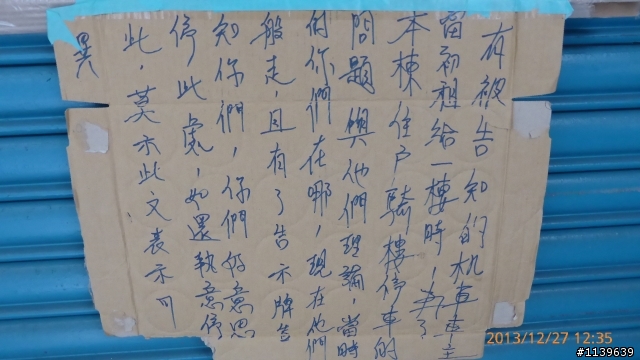 有被告知的机車車主
當初租給一樓時，為了
本棟住戶騎樓停車的
問題與他們理論，當時
的你們在哪，現在他們
般走，且有了告示牌告
知你們，你們仍意思
停此處，如還執意停
此，莫示此文表示可
異
2013/12/27 12:35
#1139639